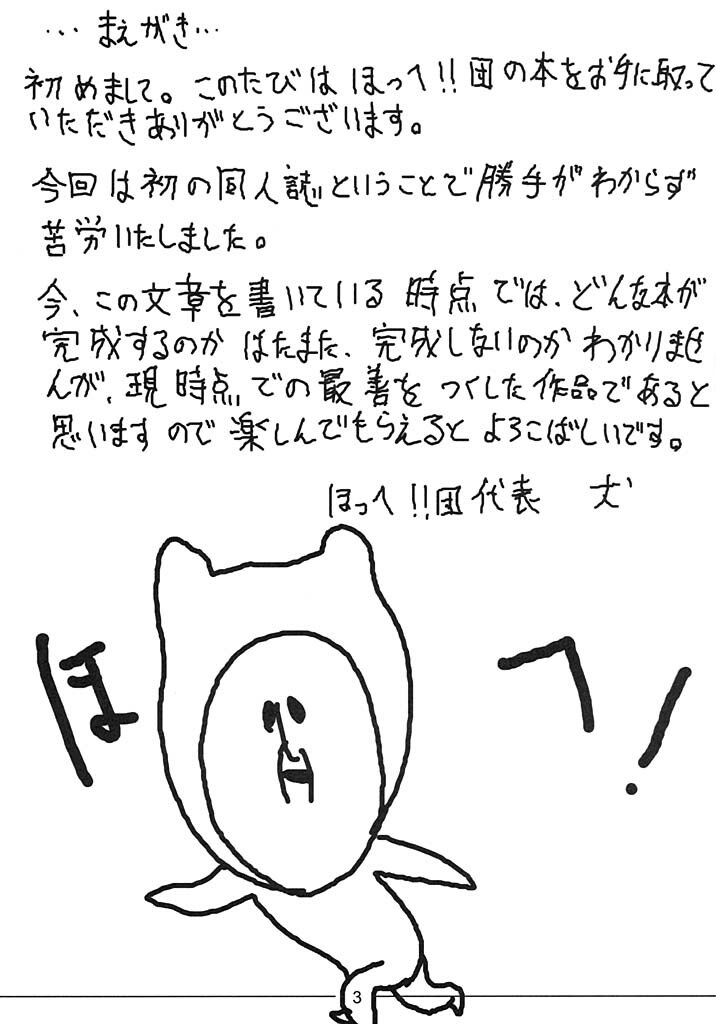 …まえがき…
初めまして。このたびは ほっへ!!団の本をお手に取って
いただきありがとうございます。
今回は初の同人誌ということで勝手がわからず
苦労いたしました。
今、この文章を書いている時点では、どんな本が
完成するのか はたまた、完成しないのか わかりませ
んが、現時点での最善を つくした作品であると
思いますので楽しんでもらえると よろこばしいです。
ほっへ!!団代表
ほ
へ!
3